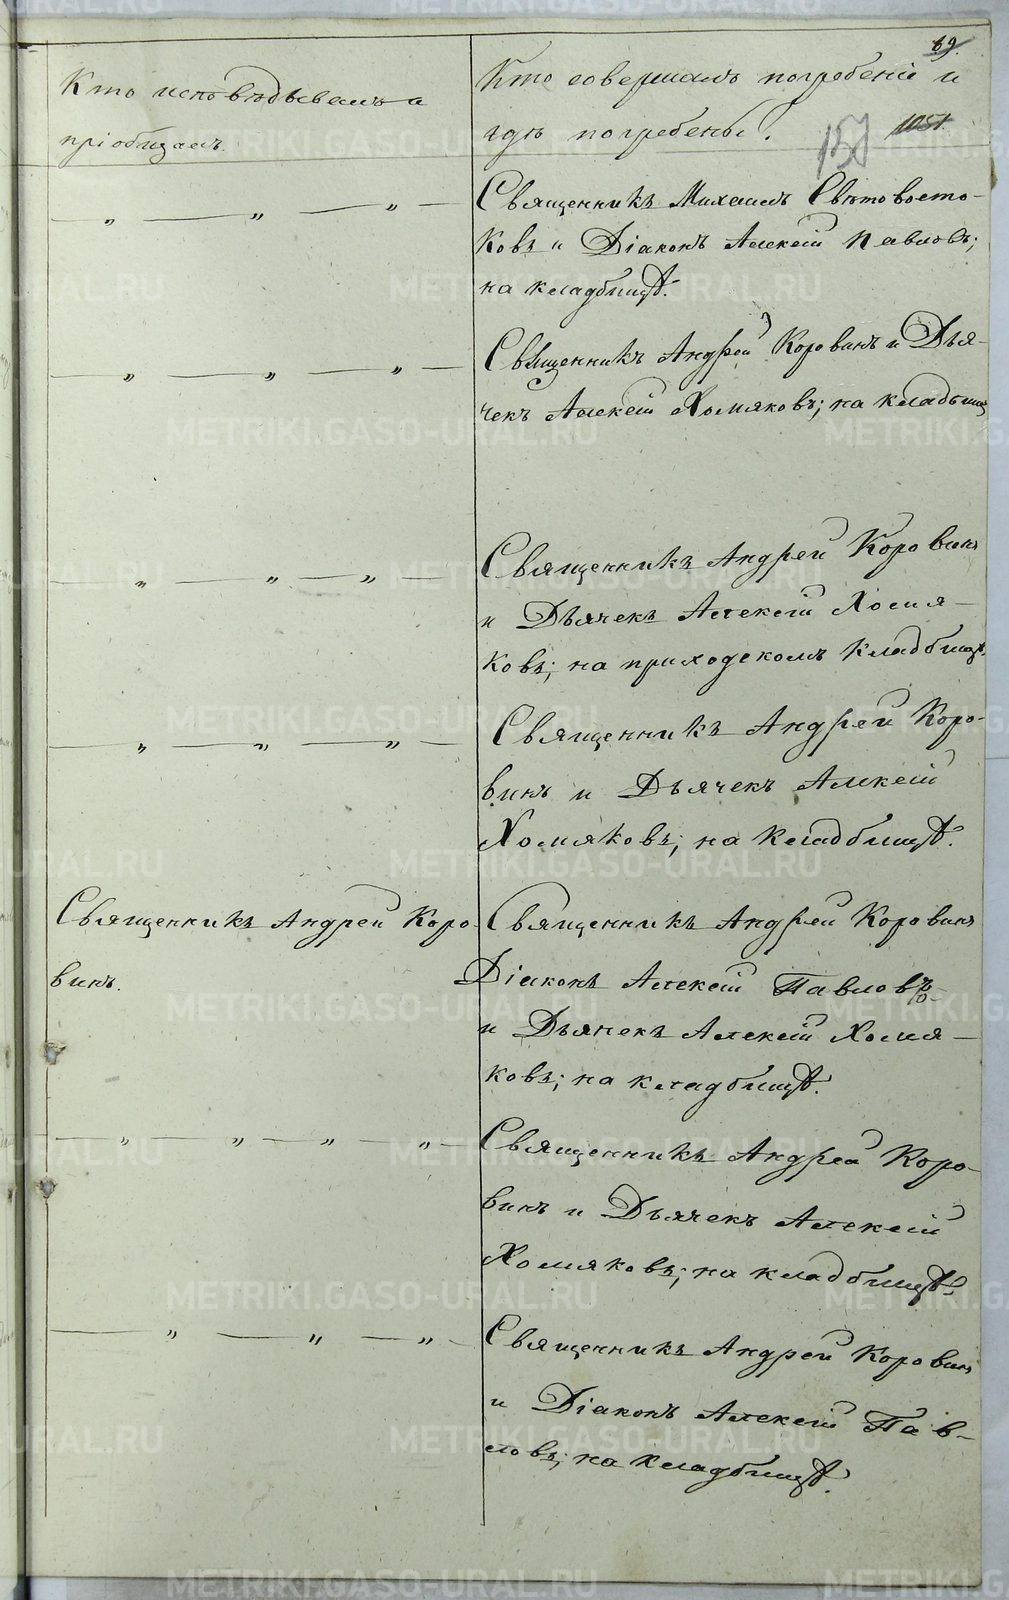 89.
Кто исповѣдывалъ и
пріобщалъ.
Кто совершалъ погребеніе и
гдѣ погребены.
157
1051.
— „ — „ — „ —
Священникъ Михаилъ Свѣтовосто-
ковъ и Діаконъ Алексій Павловъ;
на кладбищѣ.
— „ — „ — „ —
Священникъ Андрей Коровинъ и Дья-
чекъ Алексій Хомяковъ; на кладбищѣ
— „ — „ — „ —
Священникъ Андрей Коровинъ
и Дьячекъ Алексій Хомя-
ковъ; на приходскомъ кладбищѣ.
— „ — „ — „ —
Священникъ Андрей Коро-
винъ и Дьячекъ Алексій
Хомяковъ; на кладбищѣ.
Священникъ Андрей Коро-
винъ.
Священникъ Андрей Коровинъ
Діаконъ Алексій Павловъ
и Дьячекъ Алексій Хомя-
ковъ; на кладбищѣ.
— „ — „ — „ — „ —
Священникъ Андрей Коро-
винъ и Дьячекъ Алексій
Хомяковъ; на кладбищѣ.
— „ — „ — „ —
Священникъ Андрей Коровинъ
и Діаконъ Алексій Пав-
ловъ; на кладбищѣ.
METRIKI.GASO-URAL.RU